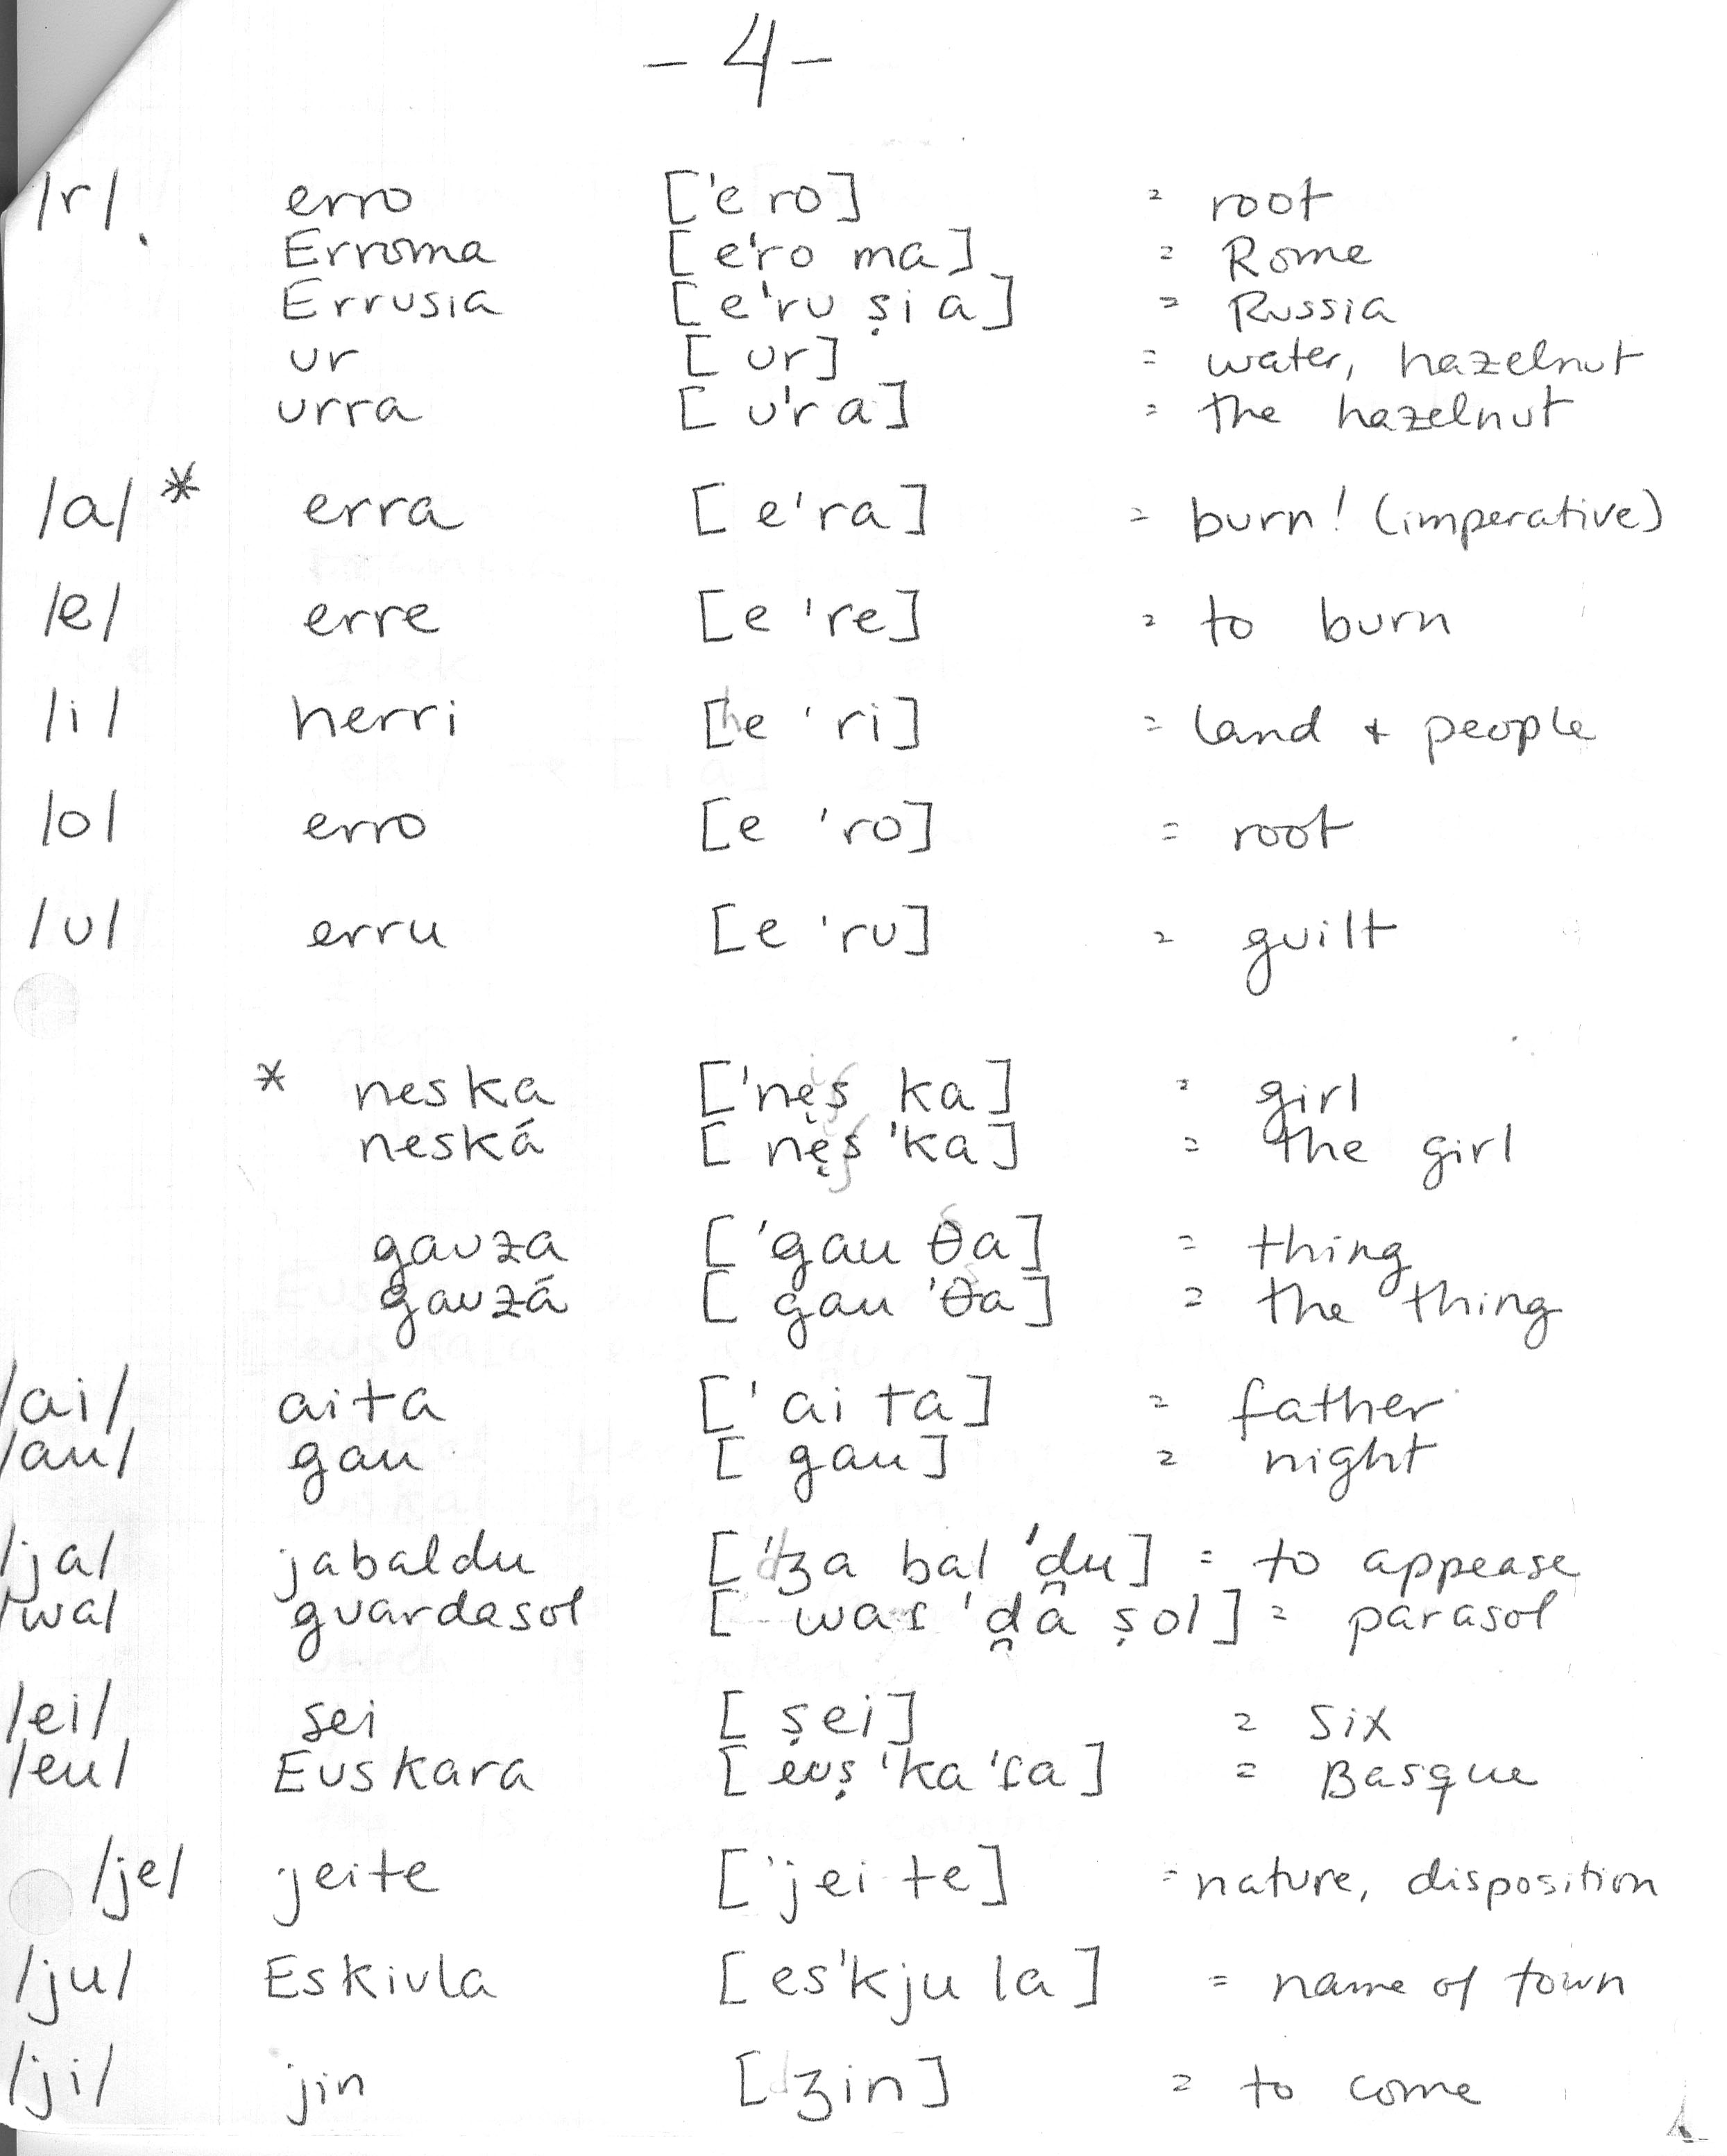 - 4 -
/r/. erro ['e ro] = root
Erroma [e'ro ma] = Rome
Errusia [e'ru ṣi a] = Russia
ur [ur] = water, hazelnut
urra [u'r a] = the hazelnut
/a/ * erra [e'ra] = burn! (imperative)
/e/ erre [e 're] = to burn
/i/ herri [he 'ri] = land + people
/o/ erro [e 'ro] = root
/u/ erru [e 'ru] = guilt
* neska ['nẹṣ ka] = girl
neská [nẹṣ 'ka] = the girl
gauza ['gau θa] = thing
gauzá [gau 'θa] = the thing
/ai/ aita ['ai ta] = father
/au/ gau [gau] = night
/ja/ jabaldu ['dʒa bal 'd̪u] = to appease
/wa/ guardasol [waɾ 'd̪a ṣol] = parasol
/ei/ sei [ṣei] = six
/eu/ Euskara [euṣ 'ka 'ɾa] = Basque
/je/ jeite ['jei te] = nature, disposition
/ju/ Eskiula [es'kju la] = name of town
/ji/ jin [dʒin] = to come